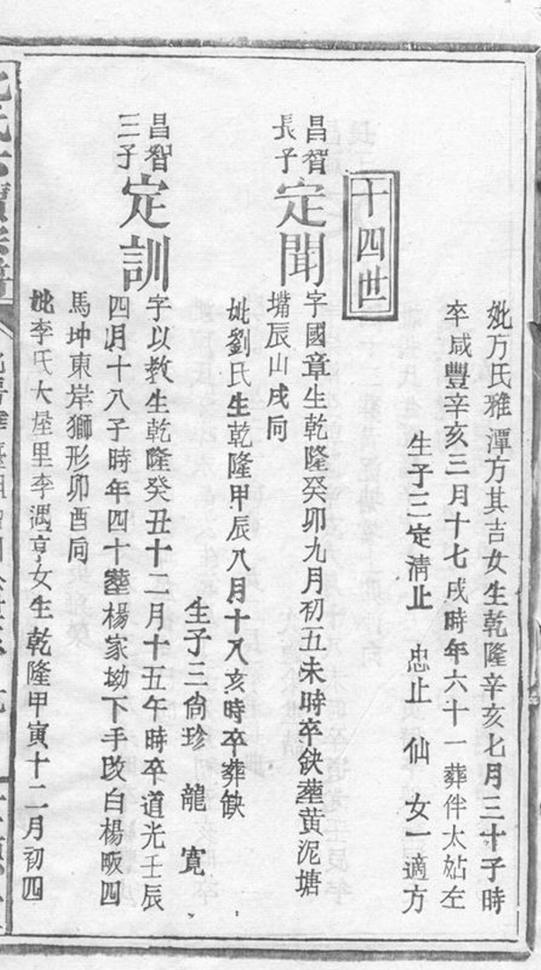 妣方氏雅潭方其吉女生乾隆辛亥七月三十子時
卒咸豐辛亥三月十七戌時年六十一葬伴太姑左
生子三定清止 忠止 仙 女一適方
十四世
昌智長子定聞字國章生乾隆癸卯九月初五未時卒缺塟黃泥塘
塘辰山戌向
妣劉氏生乾隆甲辰八月十八亥時卒葬缺
生子三尙珍 龍 寬
昌智三子定訓字以教生乾隆癸丑十二月十五午時卒道光壬辰
四月十八子時年四十塟楊家坳下手改白楊畈四
馬坤東岸獅形卯酉向
妣李氏大屋里李遇亨女生乾隆甲寅十二月初四